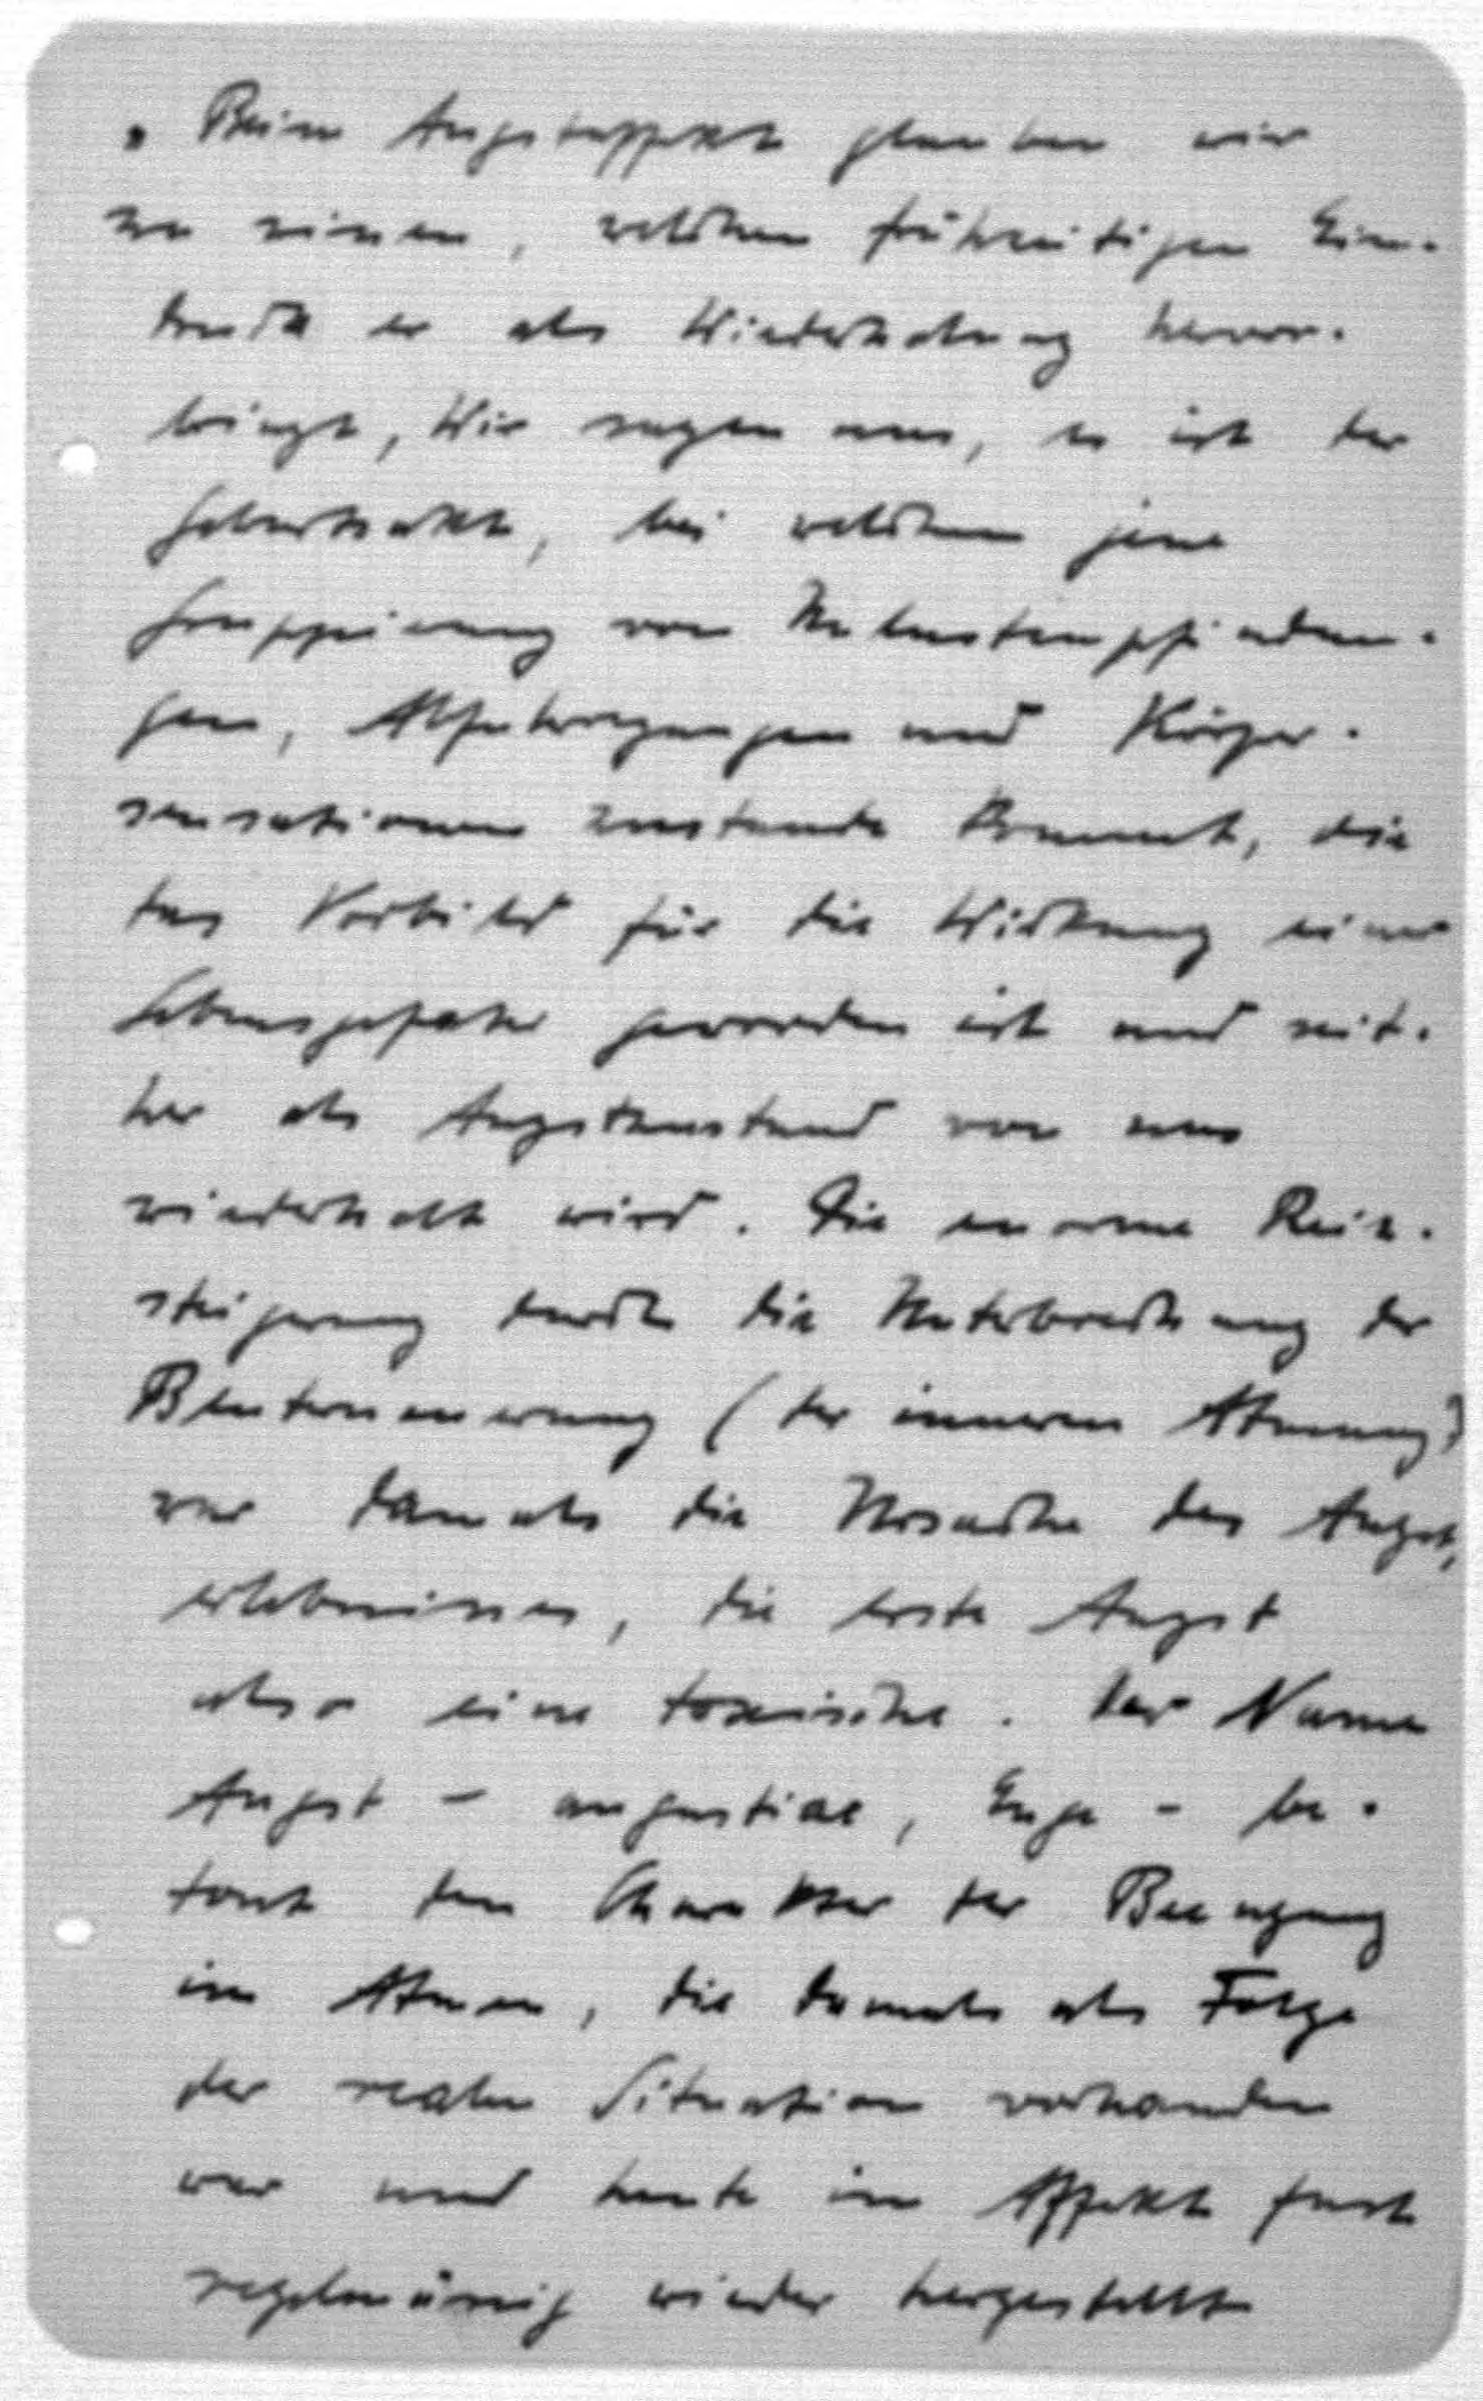 „Beim Angstaffekt glauben wir
zu wissen, welchen frühzeitigen Ein-
druck er als Wiederholung hervor-
bringt, Wir sagen uns, es ist der
Geburtsakt, bei welchem jene
Gruppierung von Unlustempfindun-
gen, Abfuhrregungen und Körper-
sensationen zustande kommt, die
das Vorbild für die Wirkung einer
Lebensgefahr geworden ist und seit-
her als Angstzustand von uns
wiederholt wird. Die enorme Reiz-
steigerung durch die Unterbrechung der
Bluterneuerung (der inneren Atmung)
war damals die Ursache des Angst-
erlebnisses, die erste Angst
also eine toxische. Der Name
Angst - angustiae, Enge - be-
tont den Charakter der Beengung
im Atmen, die damals als Folge
der realen Situation vorhanden
war und heute im Affekt fast
regelmässig wieder hergestellt